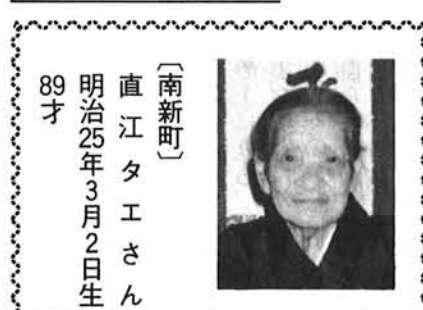 〔南新町〕
直江タエさん
明治25年3月2日生
89才